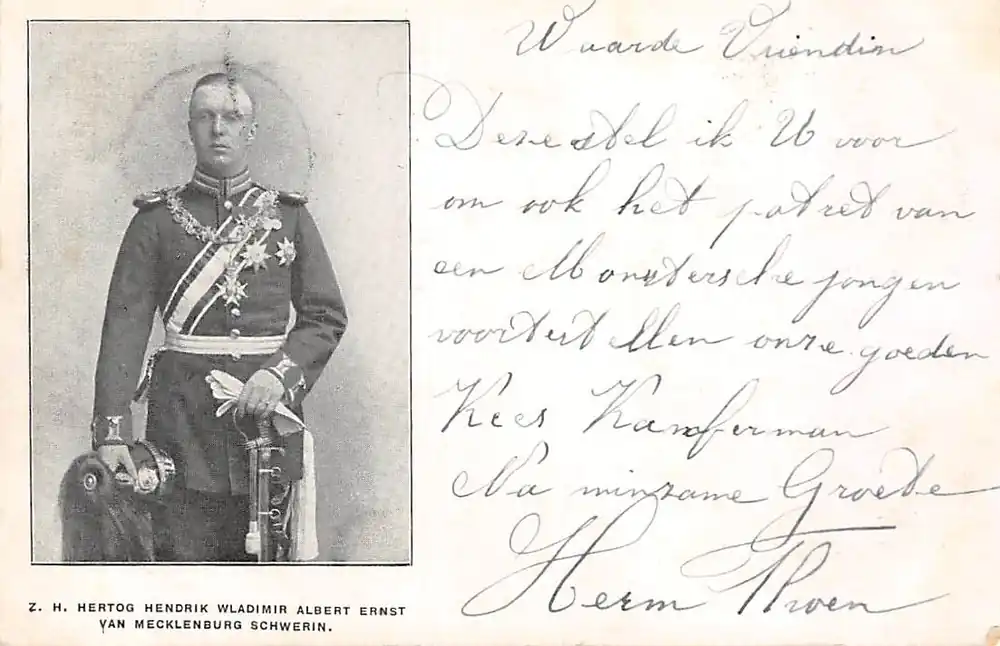 Waarde Vriendin
Deze stel ik U voor
om ook het potret van
een Monstersche jongen
voortestellen onze goeden
Kees Kamferman
Na minzame Groete
Herm
Z. H. HERTOG HENDRIK WLADIMIR ALBERT ERNST
VAN MECKLENBURG SCHWERIN.